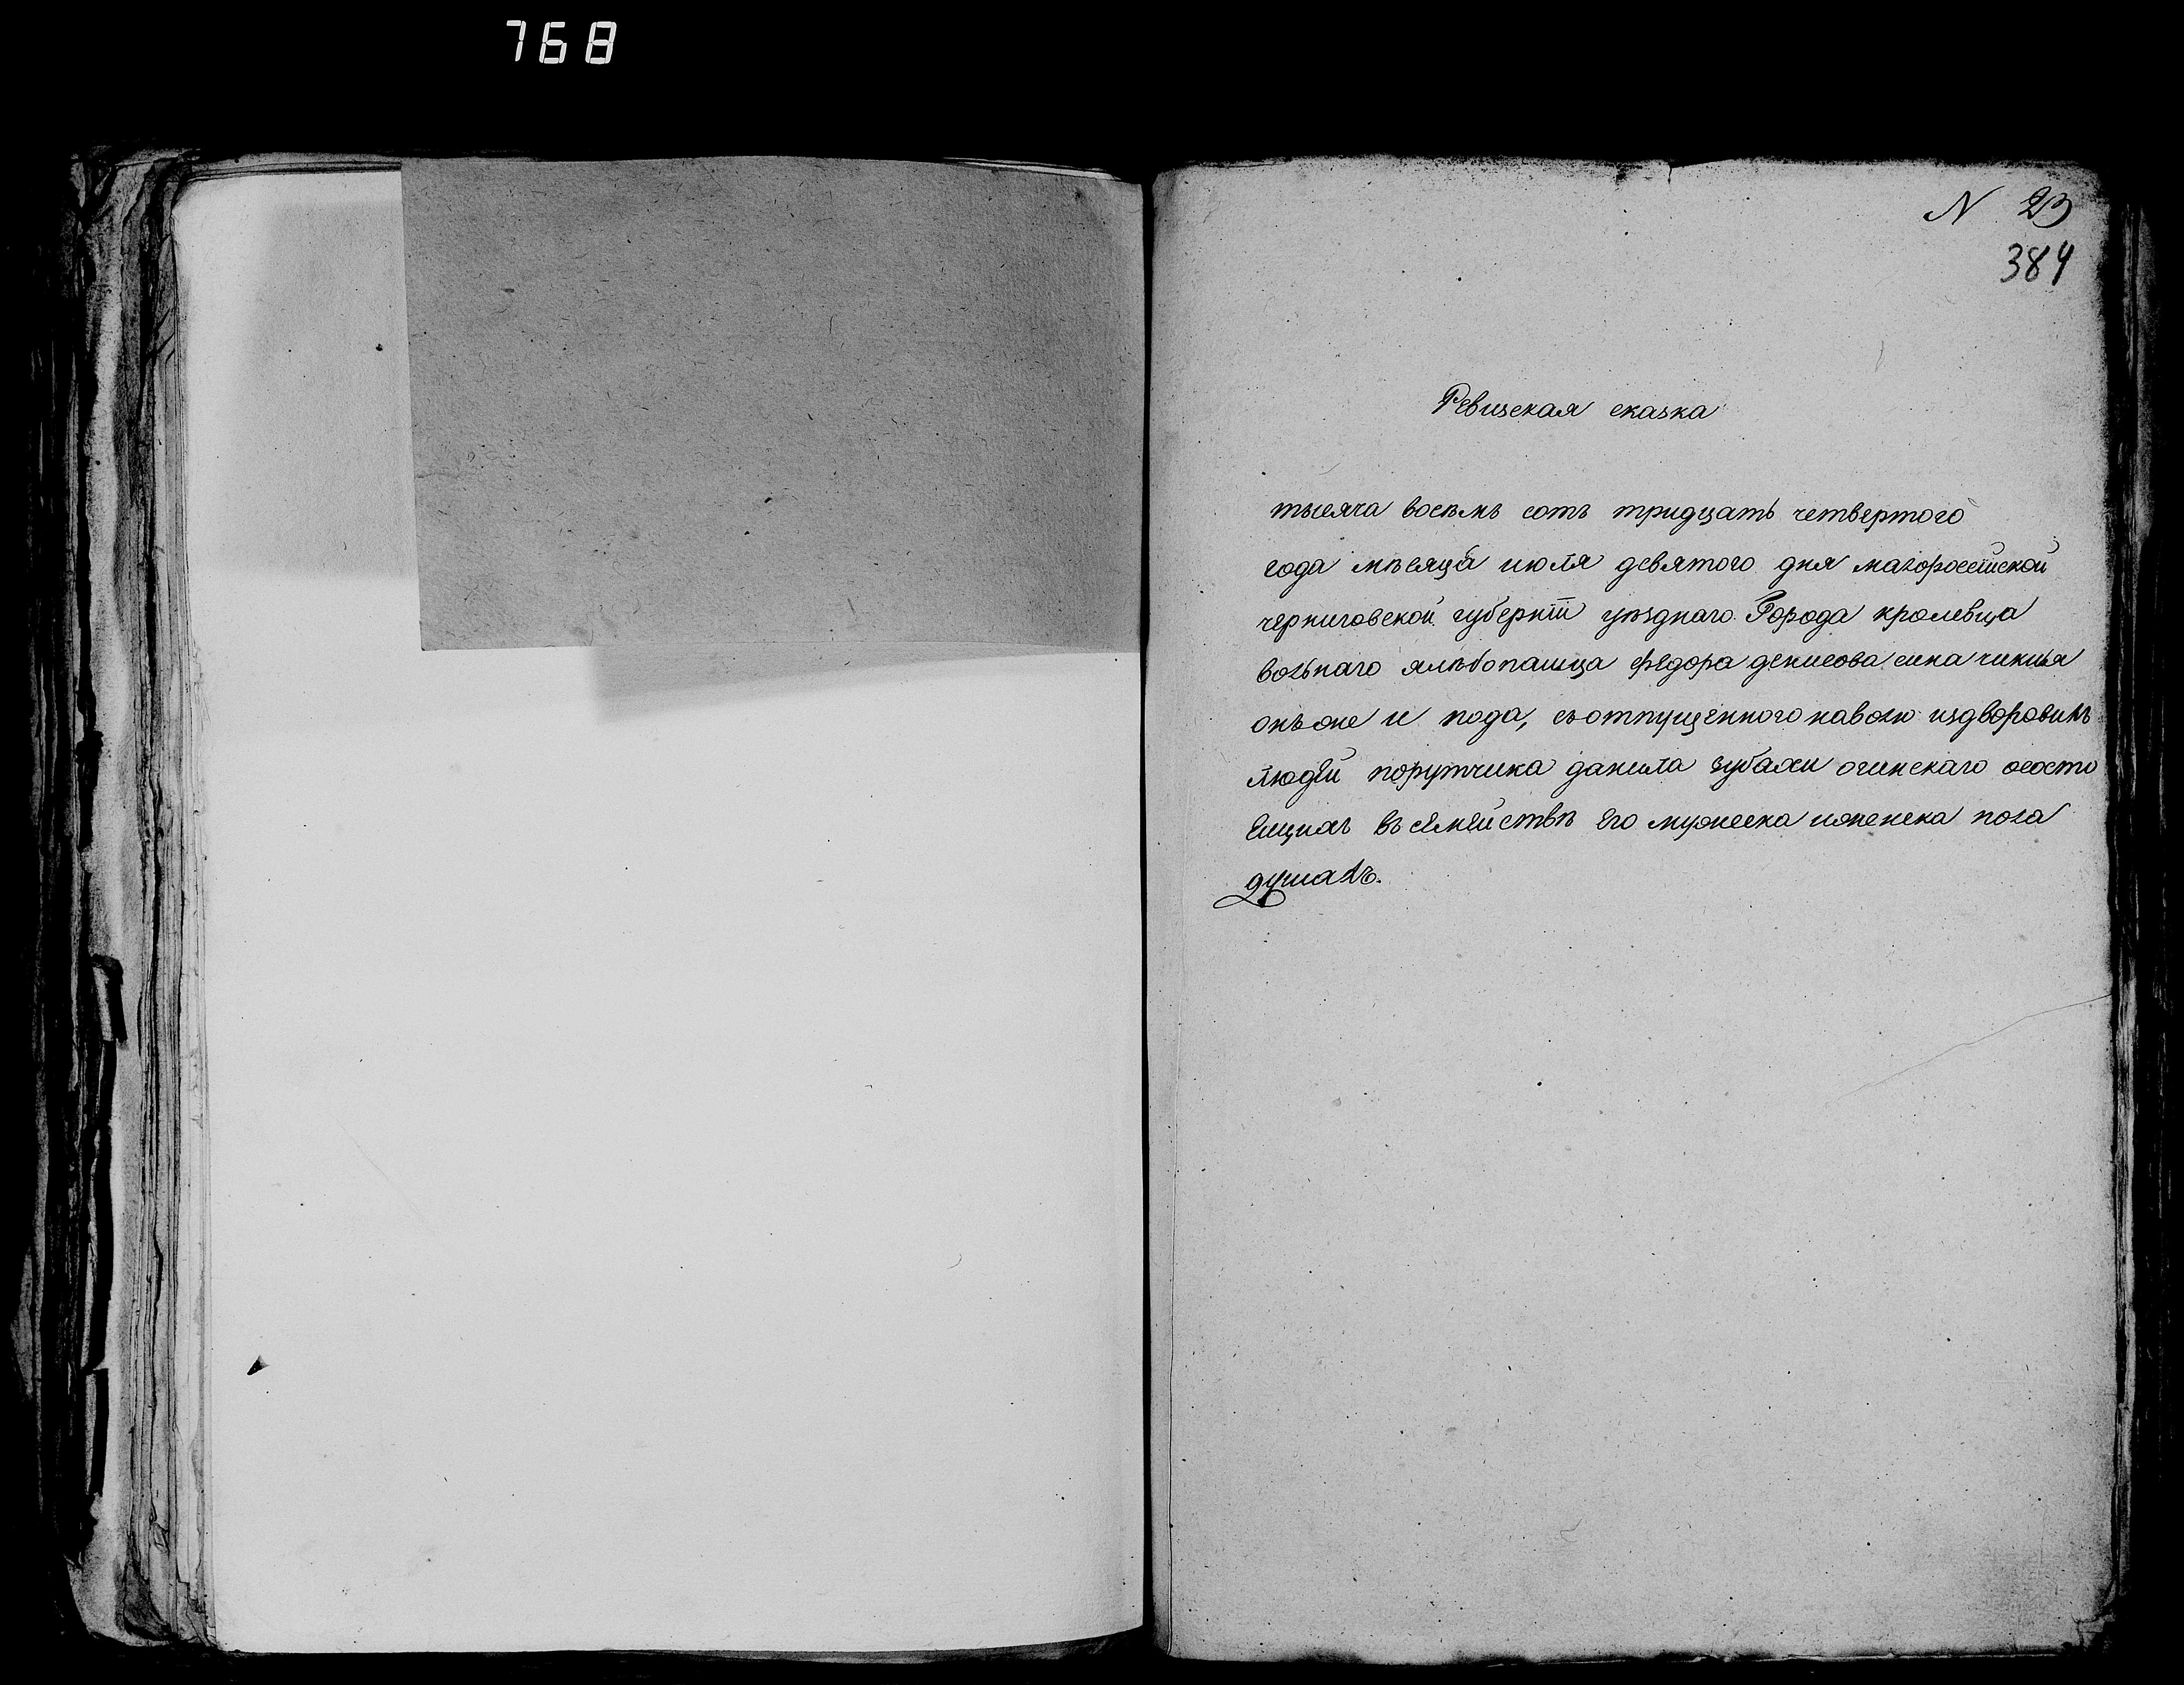 768
N 23
384
Ревизская сказка
тысяча восемь сотъ тридцать четвертого
года мѣсяца июля девятого дня малороссійской
черниговской губерніи уѣзднаго Города кролевца
вольнаго хлѣбопашца федора денисова сина чикила
онъ же и пода, съ отпущенного наволю издворовихъ
людей порутчика данила огинскаго ососто
ещихъ въ семействѣ его мужеска иженска пола
душахъ.